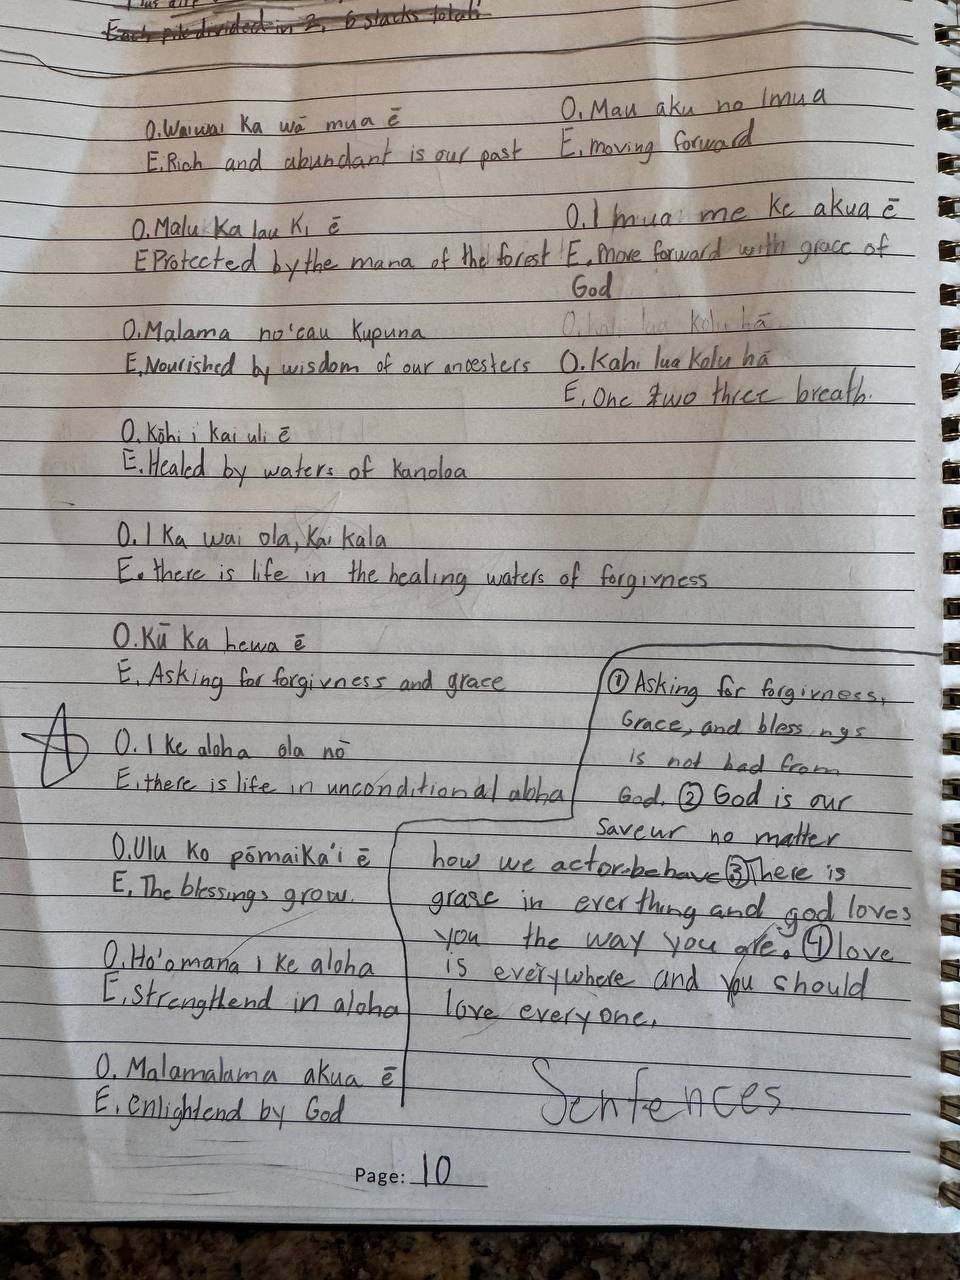 Each pile divided in 2, 6 stacks total.
O. Waiwai Ka wā mua ē
E. Rich and abundant is our past
O. Malu Ka lau Ki ē
E Protected by the mana of the forest
O. Malama no'eau Kupuna
E. Nourished by wisdom of our ancesters
O. Kōhi i kai uli ē
E. Healed by waters of Kanoloa
O. I Ka wai ola, Kai kala
E. there is life in the healing waters of forgivness
O. Kū Ka hewa ē
E. Asking for forgivness and grace
O. I ke aloha ola nō
E. there is life in unconditional aloha
O. Ulu ko pōmaika'i ē
E. The blessings grow.
O. Ho'omana i ke aloha
E. strengthend in aloha
O. Malamalama akua ē
E. enlightend by God
O. Mau aku no Imua
E. moving forward
O. I mua me ke akua ē
E. Move forward with grace of
God
O. Kahi lua Kolu hā
E. One two three breath.
① Asking for forgivness,
Grace, and blessings
is not bad from
God. ② God is our
Saveur no matter
how we act or behave ③ There is
grase in everthing and god loves
you the way you are. ④ love
is everywhere and you should
love everyone.
Sentences
Page: 10